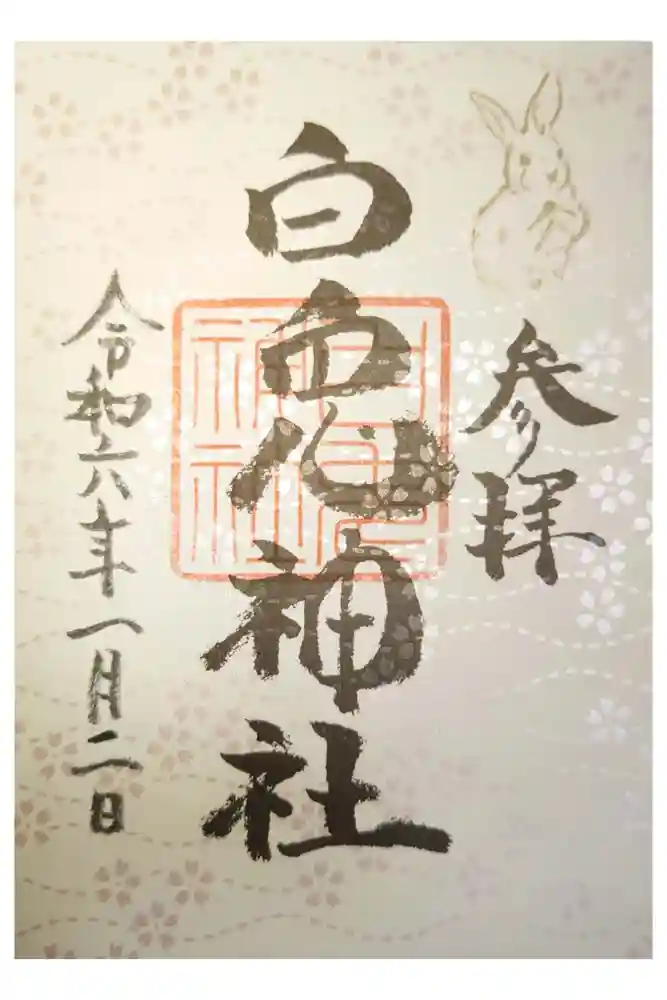 参拝
白兎神社
白兎
神社
令和六年一月二日